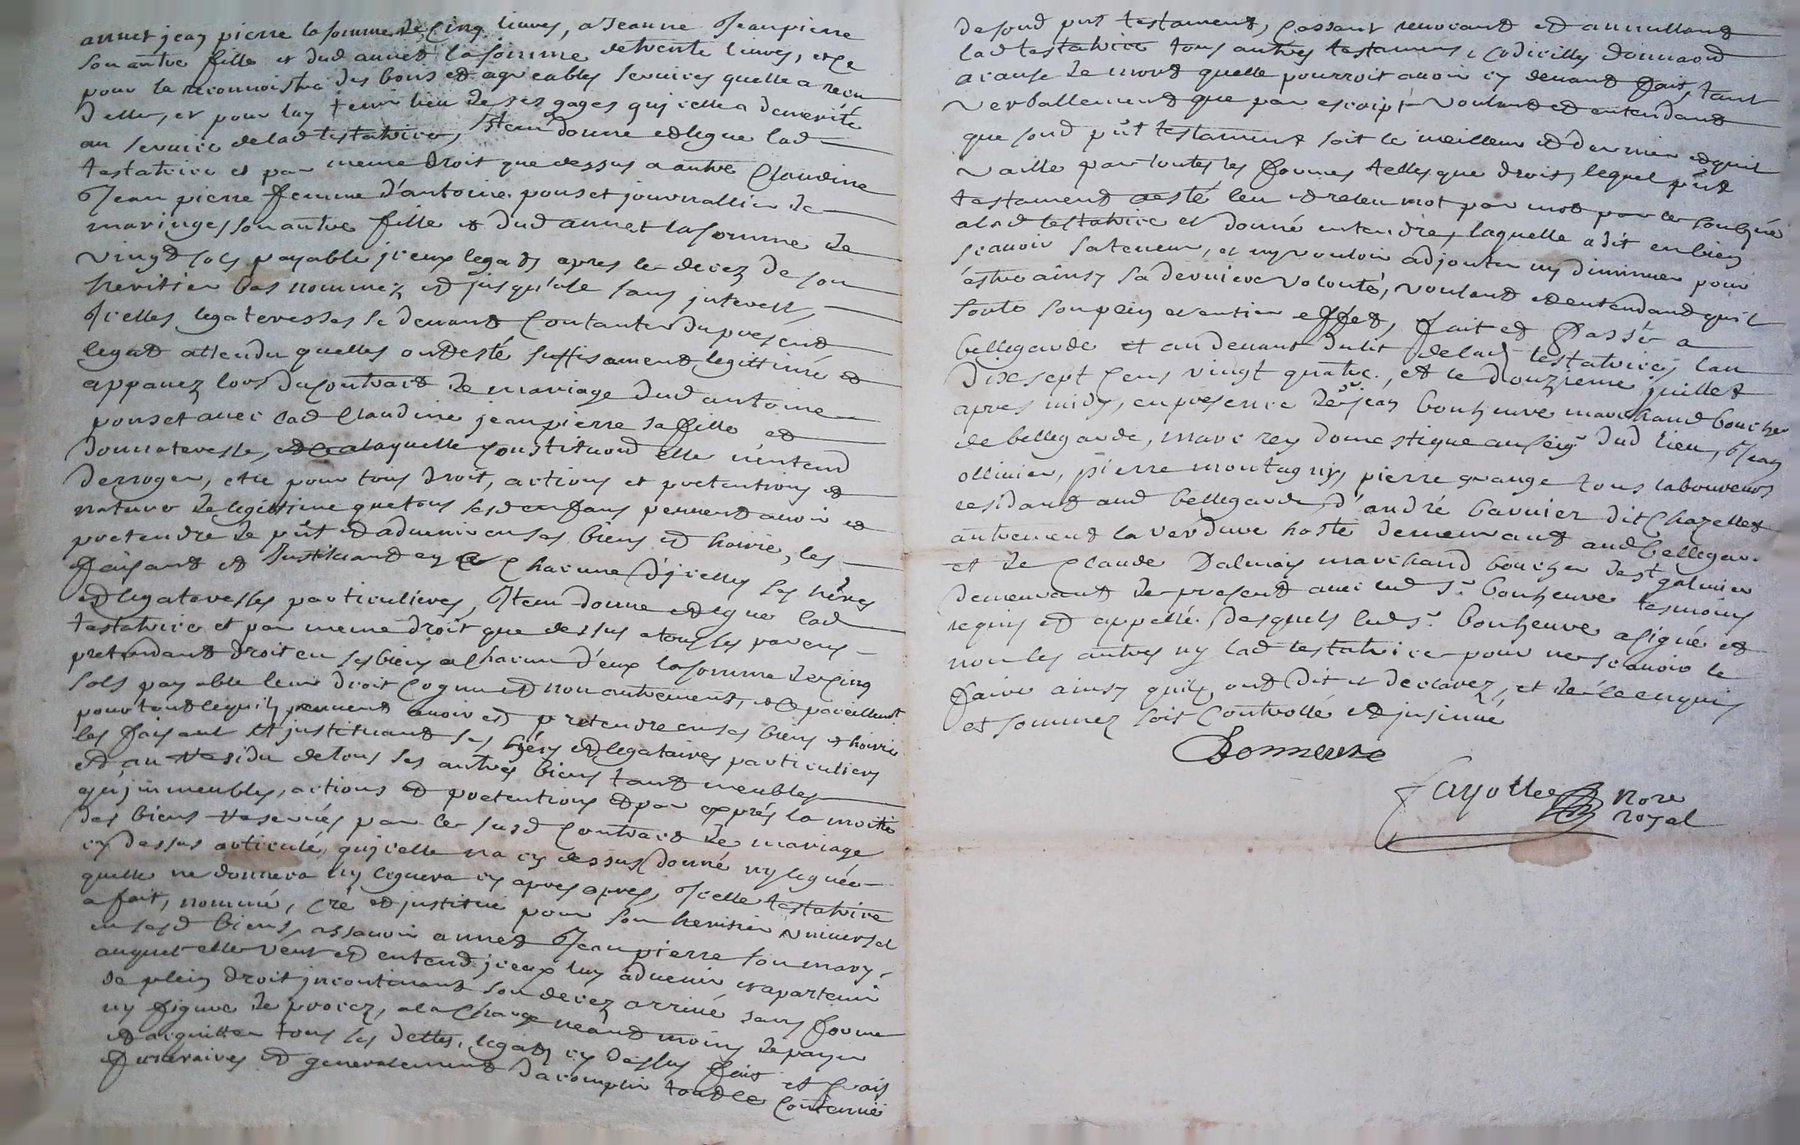 annet jean pierre la somme de cinq livres, a Jeanne Jeanpierre
son autre fille et dud annet la somme de trente livres, et ce
pour la reconnoistre des bons et agreables services quelle a receu
delle, et pour luy tenir lieu de ses gages qu'icelle a demerité
au service de lad testatrice, Item donne et legue lad
testatrice et par meme droit que dessus a autre Claudine
Jeanpierre femme d'antoine ponset journallier de
maringes son autre fille et dud annet la somme de
vingt sols payable jceux legats apres le decez de son
heritier bas nommez et jusqu'ale sans jnterest,
Jcelles legateresses se devant contanter du present
legat attendu quelles ont esté suffisament legittimé et
appanez lors du contract de mariage dud antoine
ponset avec lad Claudine jeanpierre sa fille et
donnateresse, et a laquelle constitution elle n'entend
derroger, et ce pour tous droit, actions et pretentions et
nature de legittime que tous sesd enfans peuvent avoir et
pretendre de pñt et advenir en ses biens et hoirie, les
faisant et Justituant en ce chacune d'jcelles ses hères
et legateresses particulieres, Item donne et legue lad
testatrice et par meme droit que dessus a tous les parens
pretendant droit en ses biens a chacun d'eux la somme de cinq
sols payable leur droit cognu et non autrement, et ce pareillement
pour tout ce quils peuvent avoir et pretendre en ses biens et hoirie
les faisant et justituant ses hérs et legataires particuliers
et au residu de tous ses autres biens tant meubles
qu'jmmeubles, actions et pretentions et par exprés la moitie
des biens reservés par le susd contract de mariage
cy dessus articulé, qu'jcelle na cy dessus donné ny legué
quelle ne donnera ny leguera cy apres apres, Jcelle testatrice
a fait, nommé, cré et justitué pour son heritier vniversel
en sesd biens, assavoir annet Jeanpierre son mary,
auquel elle veut et entend jceux luy advenir et apartenir
de plein droit jncontinant son decez arrivé sans forme
ny figure de procez, a la charge neant moins de payer
et acquitter tous les dettes, legats cy dessus fait et frais
funeraires et generalement dacomplir tout le contenué
de sond pnt testament, cassant revocant et annullant
lad testatrice tous autres testamens, codicilles donnaõn
a cause de mort quelle pourroit avoir cy devant fait, tant
verballement que par escript voulant et entendant
que sond pñt testament soit le meilleur et dernier et quil
vaille par toutes les formes telles que droit, lequel pñt
testament a esté leu et releu mot par mot par le soubsné
a lad testatrice et donné entendre, laquelle a dit en bien
scavoir sa teneur, et ny vouloir adjouter ny diminuer pour
éstre ainsy sa derniere volonté, voulant et entendant quil
sorte son plein et entier effet, fait et passé a
bellegarde et au devant du lit de lad testatrice, lan
dix sept cens vingt quatre, et le douzieme juillet
apres midy, en presence de sr jean bonheure marchand boucher
de bellegarde, marc rey domestique au seigr dud lieu, Jean
ollinier, pierre montagny, pierre grange tous laboureurs
residant aud bellegarde, d'andré garnier dit Chazelles
autrement la verdure hoste demeurant aud bellegar.
et de claude Dalmais marchand boucher de st galmier
demeurant de present avec led sr bonheure tesmoins
requis et appellé desquels led sr bonheure a signé et
non les autres ny lad testatrice pour ne scavoir le
faire ainsy quils ont dit et declarez, et de ce enquis
et sommez soit controllé et jnsinué
Bonneure
Fayolle nore
royal